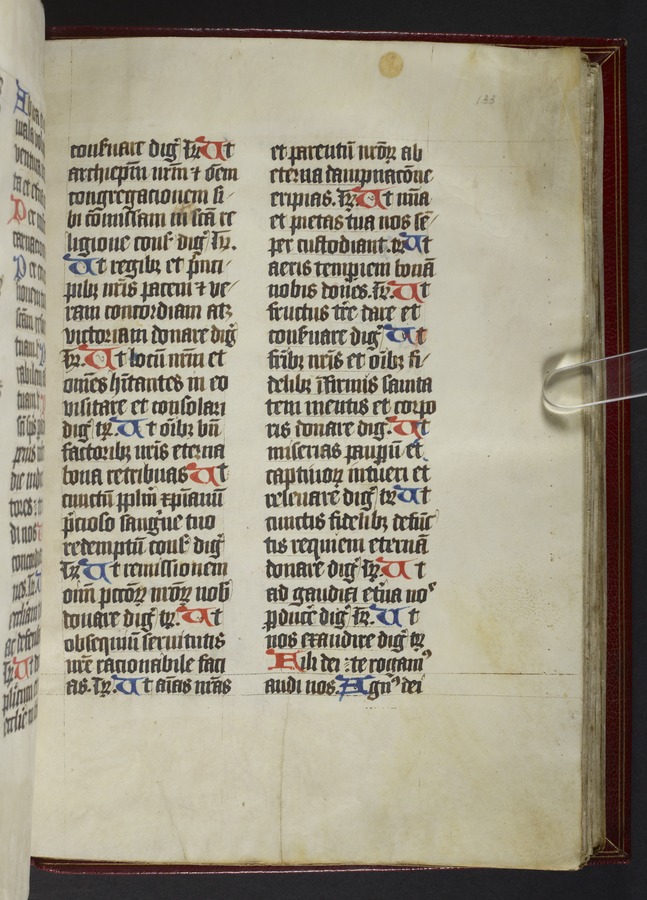 133
conẜuare dig̃ tꝝ Ut
archiep̃m nr̃m ⁊ om̃em
congregacionem si
bi cõmissam in sc̃a re
ligione cons̃ dig̃ tꝝ.
Ut regibꝫ et p̃nci
pibꝫ nr̃is pacem ⁊ ve
ram concordiam atꝫ
victoriam donare dig̃
tꝝ. Ut locũ nr̃m et
om̃es hĩtantes in eo
visitare et consolari
dig̃ tꝝ. Ut oĩbꝫ bñ
factoribꝫ nr̃is eterna
bona retribuas Ut
cunctũ pplm̃ xp̃ianũ
p̃cioso sangͥne tuo
redemptũ cons̃ dig̃
tꝝ Ut remissionem
oim̃ pccõꝝ nr̃oꝝ nob̃
donare dig̃ tꝝ. Ut
obsequiũ seruitutis
nr̃e racionabile faci
as. tꝝ. Ut aĩas nr̃as
et parentũ nr̃oꝝ ab
eterna dampnacõne
eripias. tꝝ. Ut mĩa
et pietas tua nos sẽ
per custodiant. tꝝ Ut
aeris temꝑiem bonã
nobis dones. tꝝ. Ut
fructus tr̃e dare et
conẜuare dig̃ Ut
fr̃ibꝫ nr̃is et oĩbꝫ fi
delibꝫ ĩfirmis sanita
tem mentis et corpo
ris donare dig̃. Ut
miserias pauꝑũ et
captiuoꝝ intueri et
releuare dig̃ tꝝ Ut
cunctis fidelibꝫ defũc
tis requiem eternã
donare dig̃ tꝝ. Ut
ad gaudia et̃na noˢ
ꝑducẽ dig̃ tꝝ. Ut
nos exaudire dig̃ tꝝ
Fili dei te rogamꝰ
audi nos. Agnꝰ dei